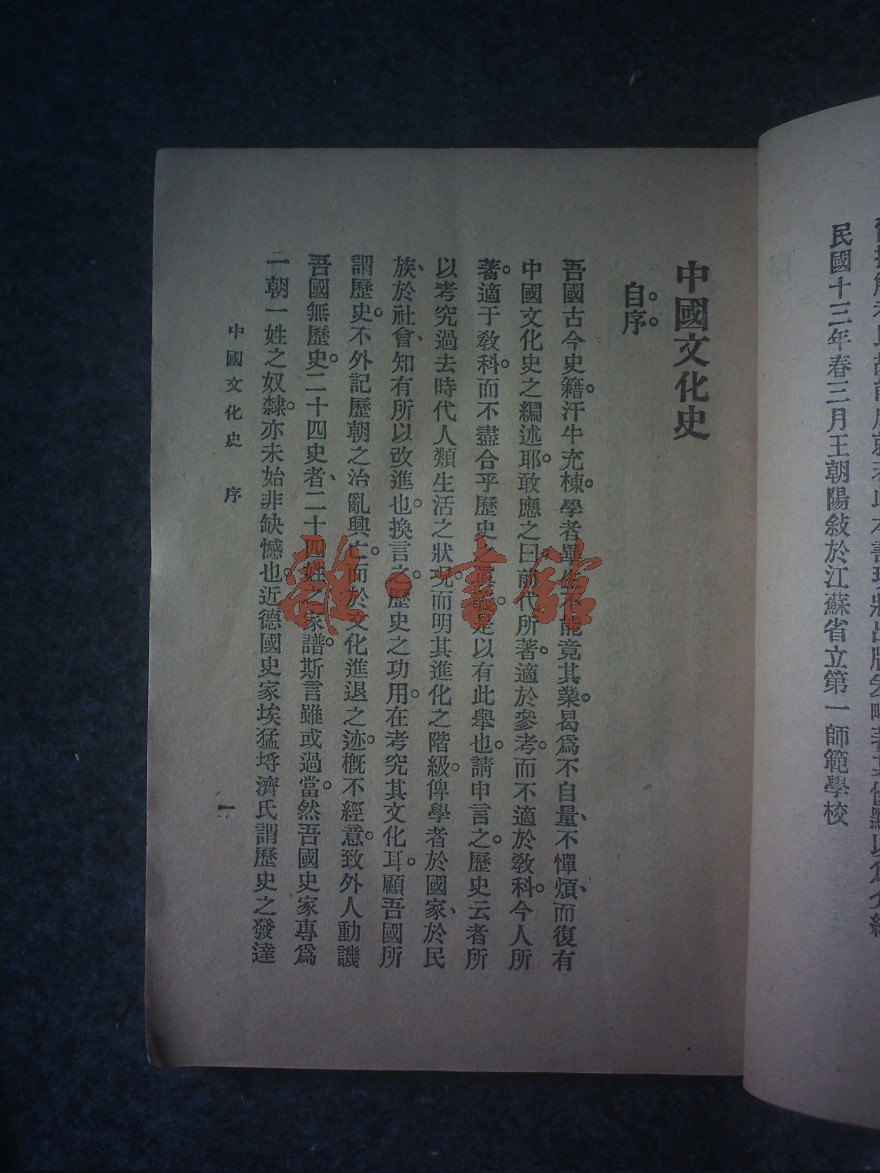 出版爰略著其優點以爲介紹
民國十三年春三月王朝陽敍於江蘇省立第一師範學校
中國文化史
自序
吾國古今史籍。汗牛充棟。學者畢生不能竟其業。曷爲不自量、不憚煩、而復有
中國文化史之編述耶。敢應之曰。前代所著。適於參考。而不適於敎科。今人所
著。適于敎科。而不盡合乎歷史之眞是以有此舉也。請申言之。歷史云者。所
以考究過去時代人類生活之狀況。而明其進化之階級。俾學者於國家、於民
族、於社會、知有所以改進也。換言之。歷史之功用。在考究其文化耳。顧吾國所
謂歷史。不外記歷朝之治亂興亡。而於文化進退之迹。槪不經意。致外人動譏
吾國無歷史。二十四史者、二十四姓之家譜。斯言雖或過當。然吾國史家專爲
一朝一姓之奴隸。亦未始非缺憾也。近德國史家埃猛埓濟氏謂歷史之發達
中國文化史 序
一
雜·書館